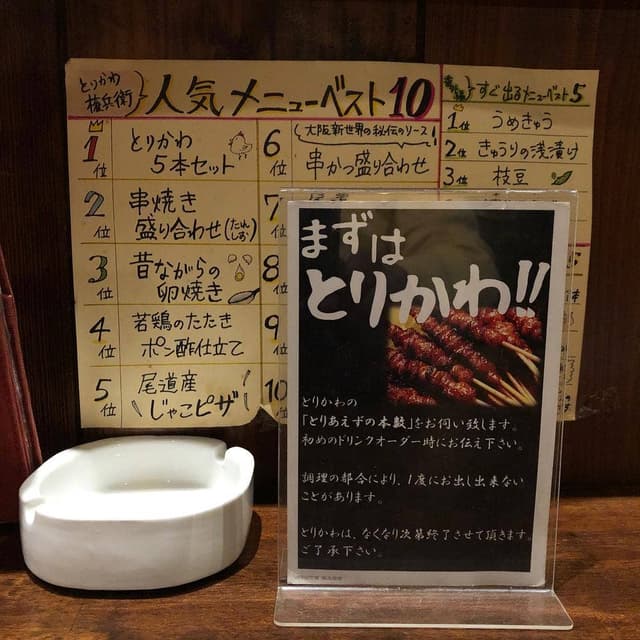 とりかわ
権兵衛
人気メニューベスト10
1位 とりかわ
5本セット
2位 串焼き
盛り合わせ(たれ しお)
3位 昔ながらの
卵焼き
4位 若鶏のたたき
ポン酢仕立て
5位 尾道産
じゃこピザ
6位 大阪新世界の秘伝のソース
串かつ盛り合わせ
7
8
9
10
すぐ出るメニューベスト5
1位 うめきゅう
2位 きゅうりの浅漬け
3位 枝豆
まずは
とりかわ!!
とりかわの
「とりあえずの本数」をお伺い致します。
初めのドリンクオーダー時にお伝え下さい。
調理の都合により、1度にお出し出来ない
ことがあります。
とりかわは、なくなり次第終了させて頂きます。
ご了承下さい。